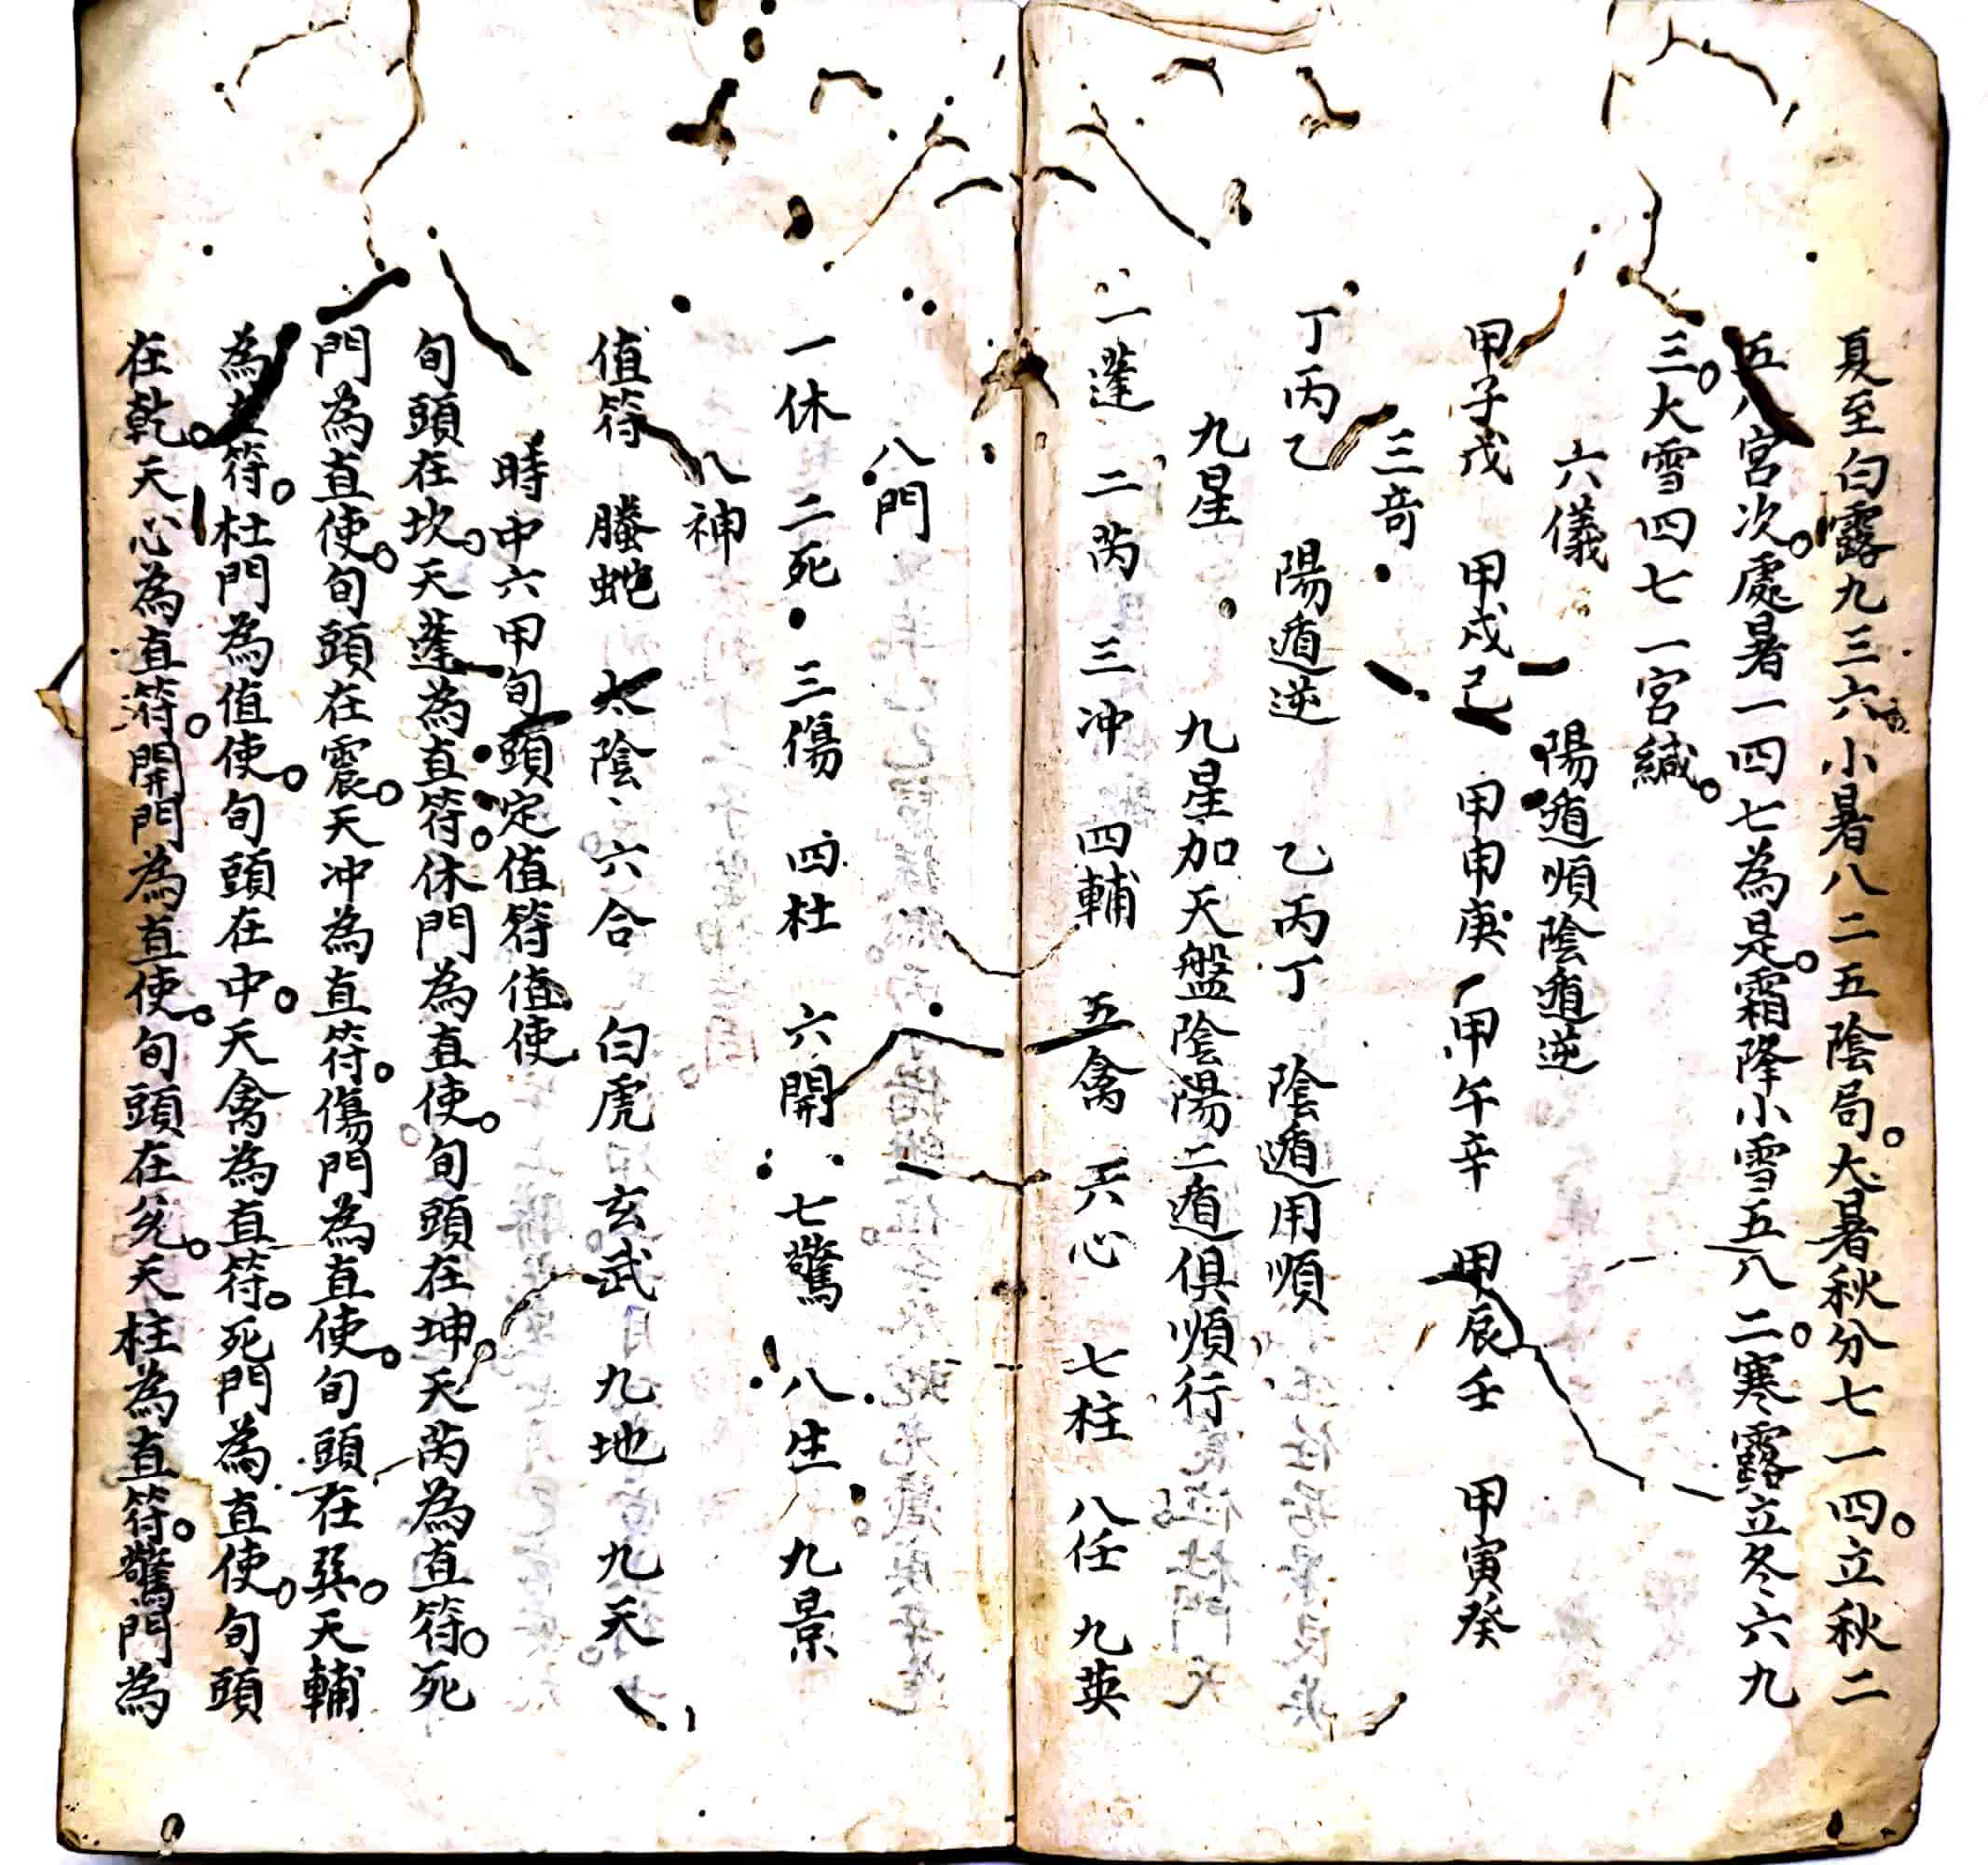 夏至白露九三六小暑八二五陰局。大暑秋分七一四。立秋二
五八宮次。處暑一四七為是。霜降小雪五八二。寒露立冬六九
三。大雪四七一宮緘。
六儀　陽遁順陰遁逆
甲子戊　甲戌己　甲申庚　甲午辛　甲辰壬　甲寅癸
三竒
丁丙乙　陽遁逆　乙丙丁　陰遁用順
九星　九星加天盤陰陽二遁俱順行
一蓬　二芮　三冲　四輔　五禽　六心　七柱　八任　九英
八門
一休　二死　三傷　四杜　六開　七驚　八生　九景
八神
值符　螣蛇　太陰　六合　白虎　玄武　九地　九天
時中六甲旬頭定值符值使
旬頭在坎。天蓬為直符。休門為直使。旬頭在坤。天芮為直符。死
門為直使。旬頭在震。天冲為直符。傷門為直使。旬頭在巽。天輔
為直符。杜門為值使。旬頭在中。天禽為直符。死門為直使。旬頭
在乾。天心為直符。開門為直使。旬頭在兊。天柱為直符。驚門為